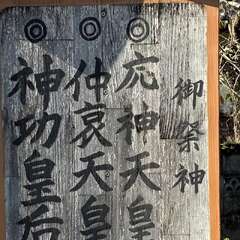 御祭神
応神天皇
仲哀天皇
神功皇后